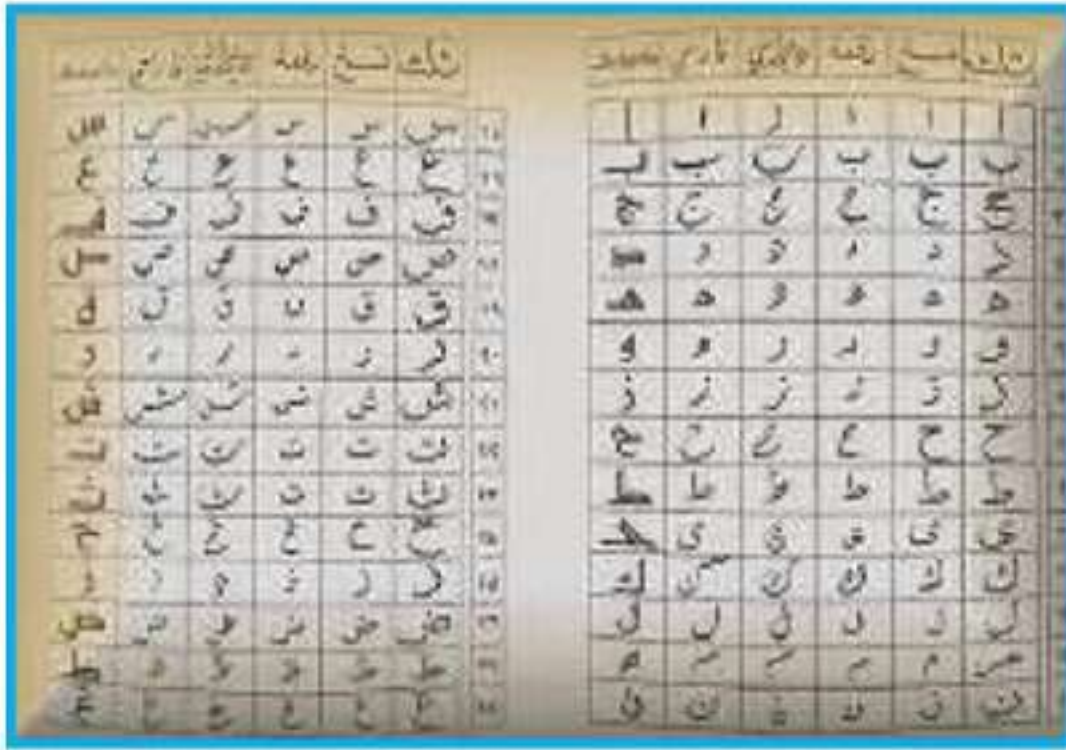 ثلث نسخ رقعة ديواني فارسي
ا ا ا ا ا ا
ب ب ب ب ب ب
ج ج ج ج ج ج
د د د د د د
ه ه ه ه ه ه
و و و و و و
ز ز ز ز ز ز
ح ح ح ح ح ح
ط ط ط ط ط ط
ي ي ي ي ي ي
ك ك ك ك ك ك
ل ل ل ل ل ل
م م م م م م
ن ن ن ن ن ن
ثلث نسخ رقعة ديواني فارسي
س س س س س س
ع ع ع ع ع ع
ف ف ف ف ف ف
ص ص ص ص ص ص
ق ق ق ق ق ق
ر ر ر ر ر ر
ش ش ش ش ش ش
ت ت ت ت ت ت
ث ث ث ث ث ث
خ خ خ خ خ خ
ذ ذ ذ ذ ذ ذ
ض ض ض ض ض ض
ظ ظ ظ ظ ظ ظ
غ غ غ غ غ غ